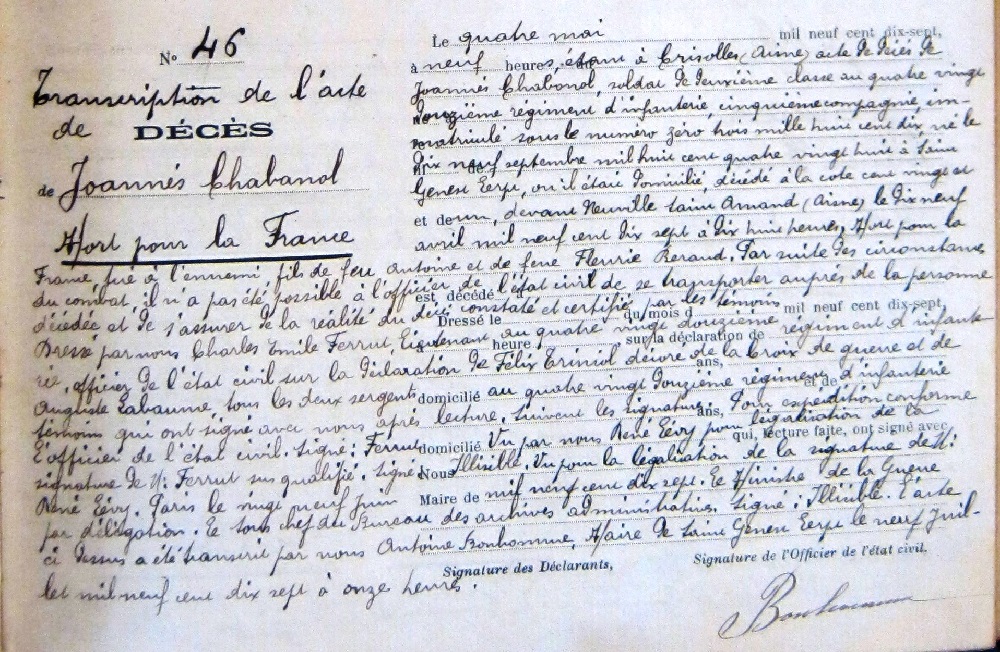 N° 46
Transcription de l'acte
de DÉCÈS
de Joannès Chabanol
Mort pour la France
Le quatre mai mil neuf cent dix-sept,
à neuf heures, étant à Crisolles (Aisne) acte de décès de
Joannès Chabanol, soldat de deuxième classe au quatre vingt
douzième régiment d'infanterie, cinquième compagnie, im-
matriculé sous le numéro zéro trois mille huit cent dix, né le
dix neuf septembre mil huit cent quatre vingt huit à Saint
Genest Lerpt, où il était domicilié, décédé à la cote cent vingt et
et de un, devant Neuville Saint Amand (Aisne) le dix neuf
avril mil neuf cent dix sept à dix huit heures, Mort pour la
France, tué à l'ennemi, fils de feu Antoine et de feue Fleurie Beraud. Par suite des circonstances
du combat, il n'a pas été possible à l'officier de l'état civil de se transporter auprès de la personne
est décédé
décédée et de s'assurer de la réalité du décès constaté et certifié par les témoins
Dressé le du mois d mil neuf cent dix-sept,
Dressé par nous Charles Emile Ferrut, Lieutenant au quatre vingt douzième régiment d'infante
heure sur la déclaration de
rie, officier de l'état civil sur la déclaration de Félix Triniol décoré de la Croix de guerre et de
ans,
Auguste Labaume, tous les deux sergents domicilié au quatre vingt douzième régiment d'infanterie
et de
témoins qui ont signé avec nous après lecture, suivent les signatures ans, Pour expédition conforme
L'officier de l'état civil. Signé: Ferrut domicilié Vu par nous René Lévy pour légalisation de la
qui, lecture faite, ont signé avec
signature de M. Ferrut sus qualifié. Signé Nous Illisible. Vu pour la légalisation de la signature de M:
René Lévy. Paris le vingt neuf Juin Maire de mil neuf cent dix sept. Le Ministre de la Guerre
par délégation. Le sous chef du Bureau des archives administratives. Signé: Illisible. L'acte
ci dessus a été transcrit par nous Antoine Bonhomme, Maire de Saint Genest Lerpt le neuf Juil-
let mil neuf cent dix sept à onze heures.
Signature des Déclarants,
Signature de l'Officier de l'état civil,
Bonhomme